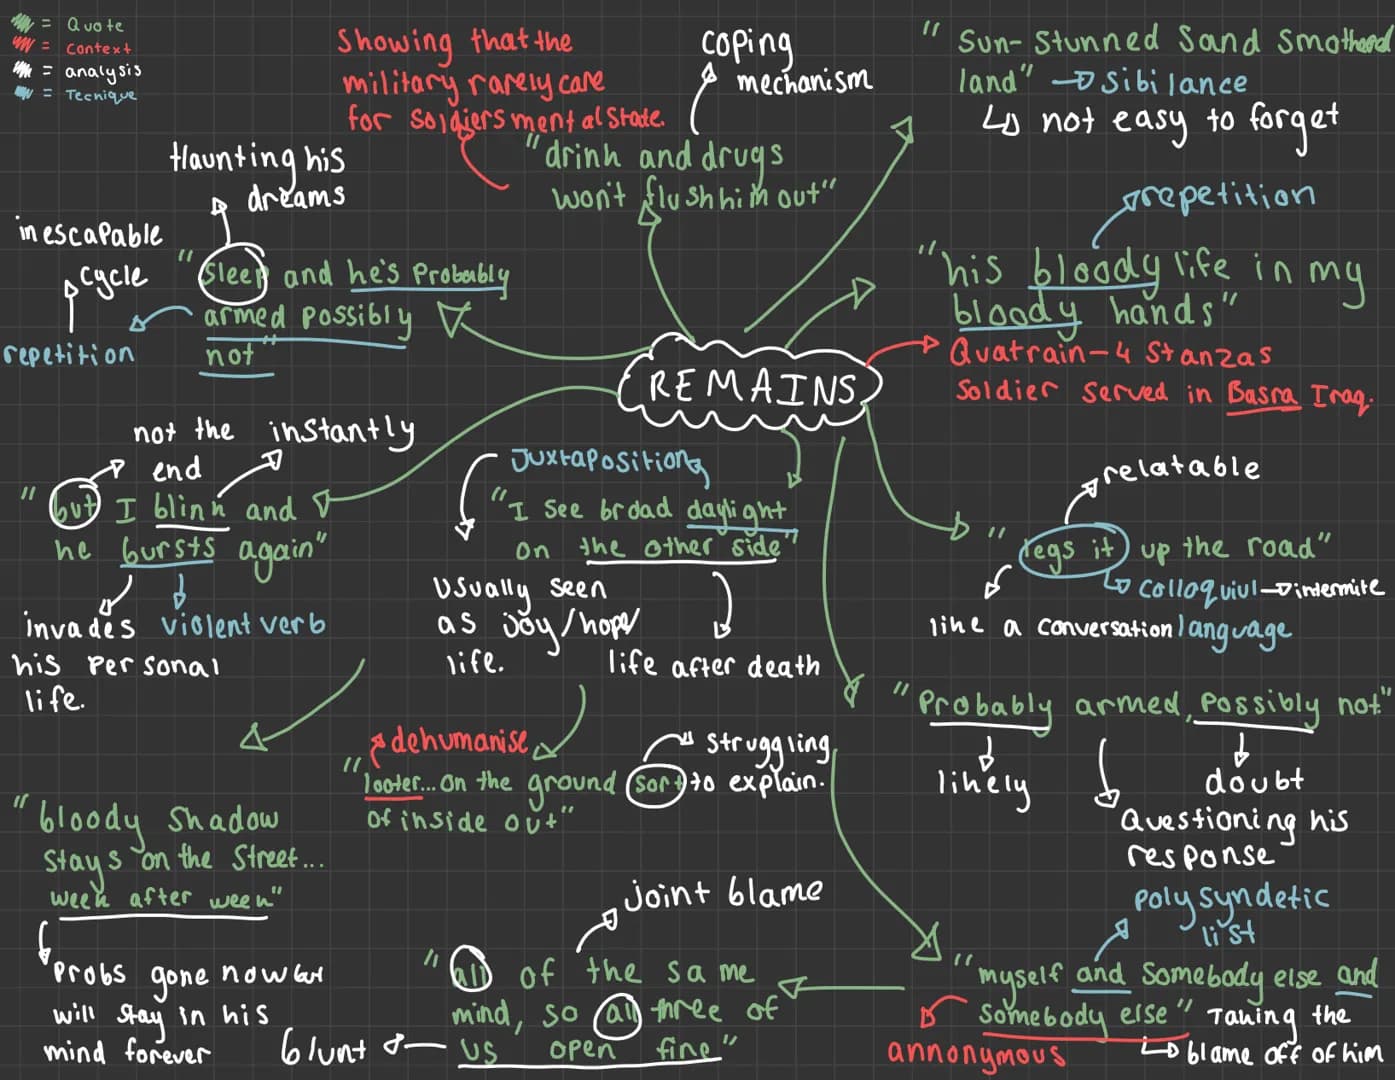 = Quote
= Context
= analysis
= Tecnique
Showing that the
military rarely care
for soldiers mental state.
coping
mechanism
"drink and drugs
won't flush him out"
"Sun-Stunned Sand Smothered
land" → Sibilance
↳ not easy to forget
Haunting his
dreams
inescapable
cycle
"Sleep and he's Probably
armed possibly
not"
repetition
repetition
"his bloody life in my
bloody hands"
REMAINS
Quatrain-4 Stanzas
Soldier served in Basra Iraq.
not the
end
instantly
"but I blink and
he bursts again"
invades
his personal
life.
violent verb
Juxtaposition
"I see broad daylight
on the other side"
Usually seen
as joy/hope/
life.
life after death
relatable
"legs it up the road"
colloquiul → intermite
language
like a conversation
"Probably armed, Possibly not"
likely
doubt
Questioning his
response
dehumanise
struggling
to explain.
"looter...on the ground sort
of inside out"
"bloody shadow
Stays on the Street...
week after week"
Probs gone now but
will stay in his
mind forever
joint blame
"all of the same
mind, so all three of
us open fire"
blunt
polysyndetic
list
"myself and Somebody else and
somebody else"
annonymous
Taking the
↳ blame off of him